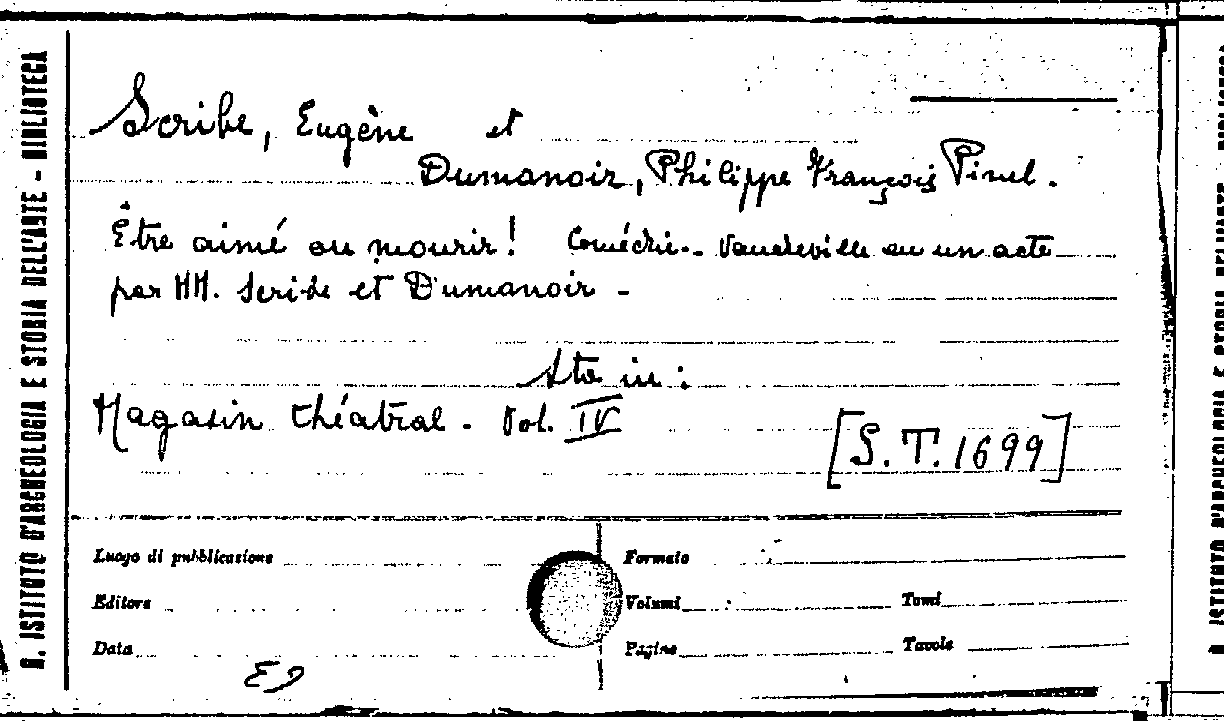 R. ISTITUTO D'ARCHEOLOGIA E STORIA DELL'ARTE - BIBLIOTECA
Scribe, Eugène et
Dumanoir, Philippe François Pinel.
Être aimé ou mourir! Comédie-Vaudeville en un acte
par MM. Scribe et Dumanoir -
Sta in:
Magasin théatral. Vol. IV
[S.T.1699]
Luogo di pubblicazione
Formato
Editore
Volumi
Tomi
Data
Pagine
Tavole